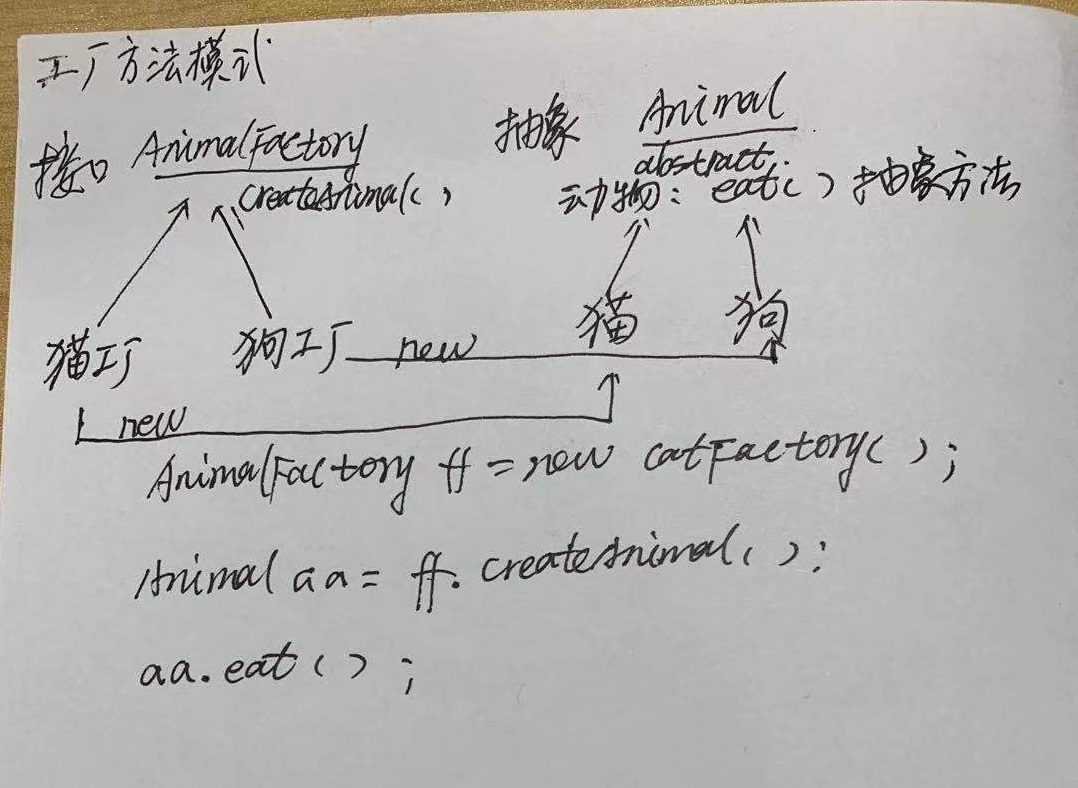 工厂方法模式
接口 AnimalFactory 抽象 Animal
createAnimal() abstract.
动物: eat() 抽象方法
猫工厂 狗工厂 new 猫 狗
new
AnimalFactory ff = new catFactory();
Animal aa = ff.createAnimal():
aa.eat();